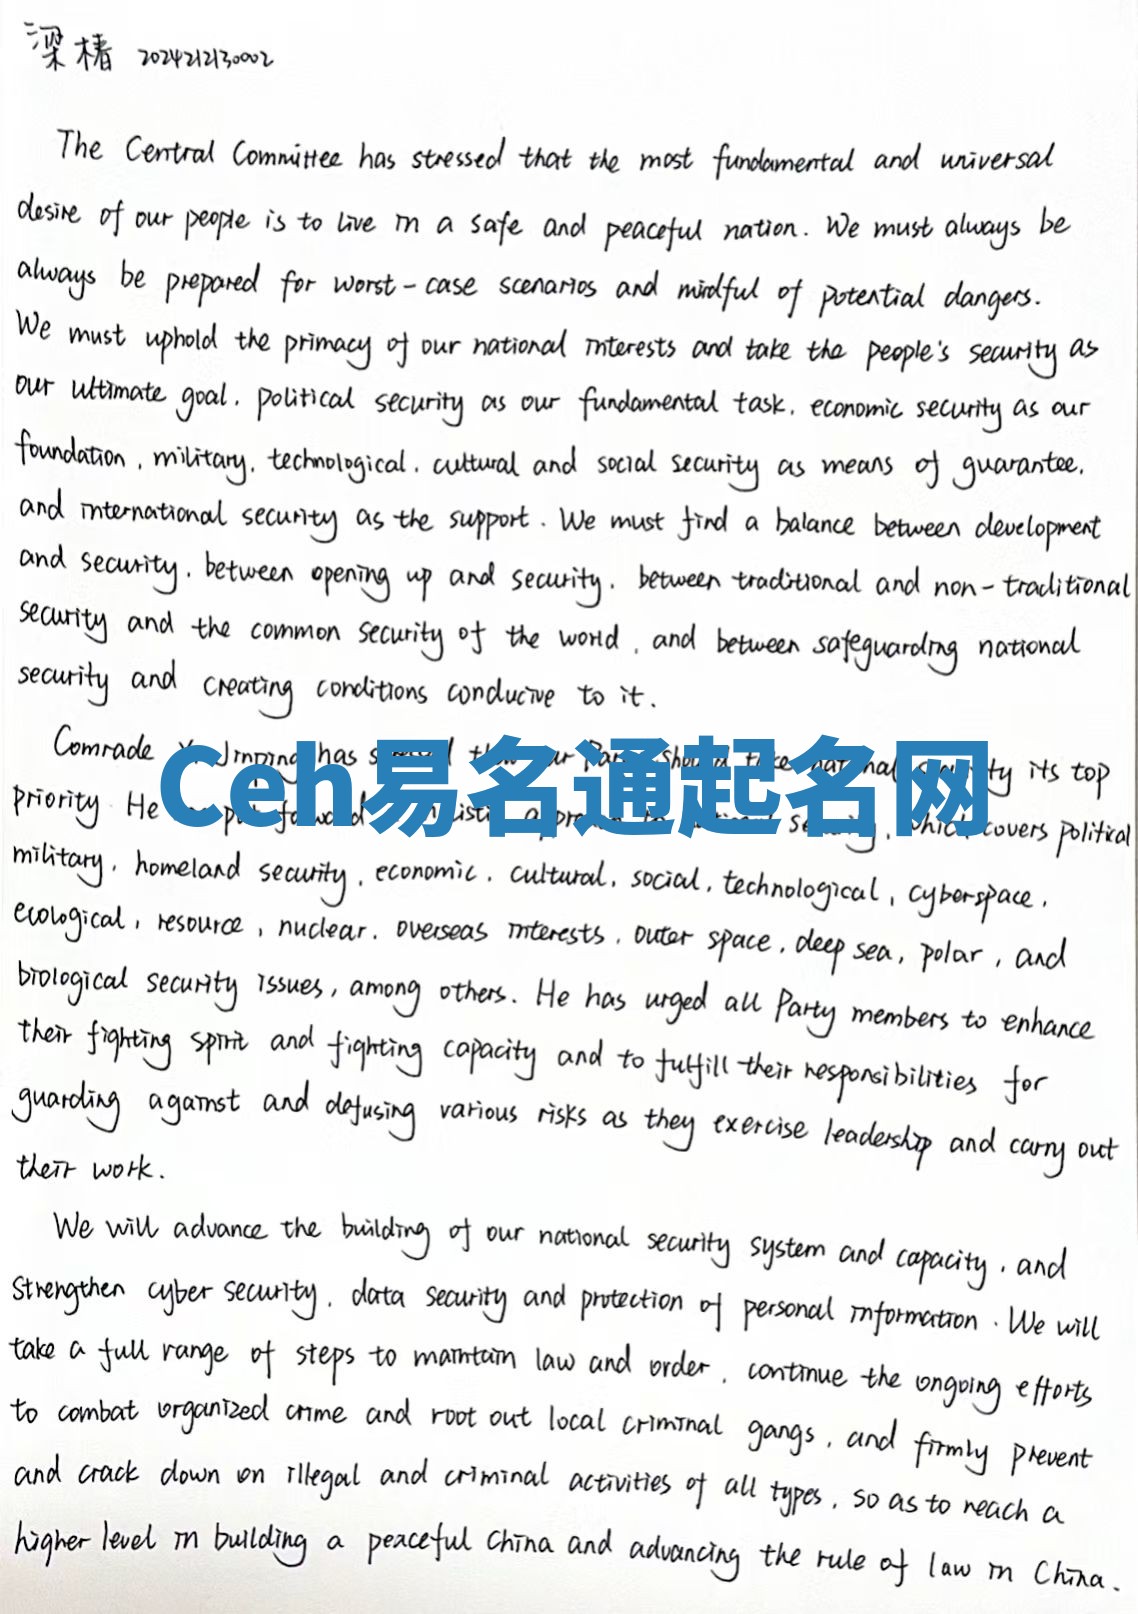 梁椿 2024212130002
The Central Committee has stressed that the most fundamental and universal
desire of our people is to live in a safe and peaceful nation. We must always be
always be prepared for worst-case scenarios and mindful of potential dangers.
We must uphold the primacy of our national interests and take the people's security as
our ultimate goal, political security as our fundamental task, economic security as our
foundation, military, technological, cultural and social security as means of guarantee,
and international security as the support. We must find a balance between development
and security, between opening up and security, between traditional and non-traditional
security and the common security of the world, and between safeguarding national
security and creating conditions conducive to it.
Comrade Jinping has its top
Ceh易名通起名网
priority. He covers political
military, homeland security, economic, cultural, social, technological, cyberspace,
ecological, resource, nuclear, overseas interests, outer space, deep sea, polar, and
biological security issues, among others. He has urged all Party members to enhance
their fighting spirit and fighting capacity and to fulfill their responsibilities for
guarding against and defusing various risks as they exercise leadership and carry out
their work.
We will advance the building of our national security system and capacity, and
strengthen cyber security, data security and protection of personal information. We will
take a full range of steps to maintain law and order, continue the ongoing efforts
to combat organized crime and root out local criminal gangs, and firmly prevent
and crack down on illegal and criminal activities of all types, so as to reach a
higher level in building a peaceful China and advancing the rule of law in China.